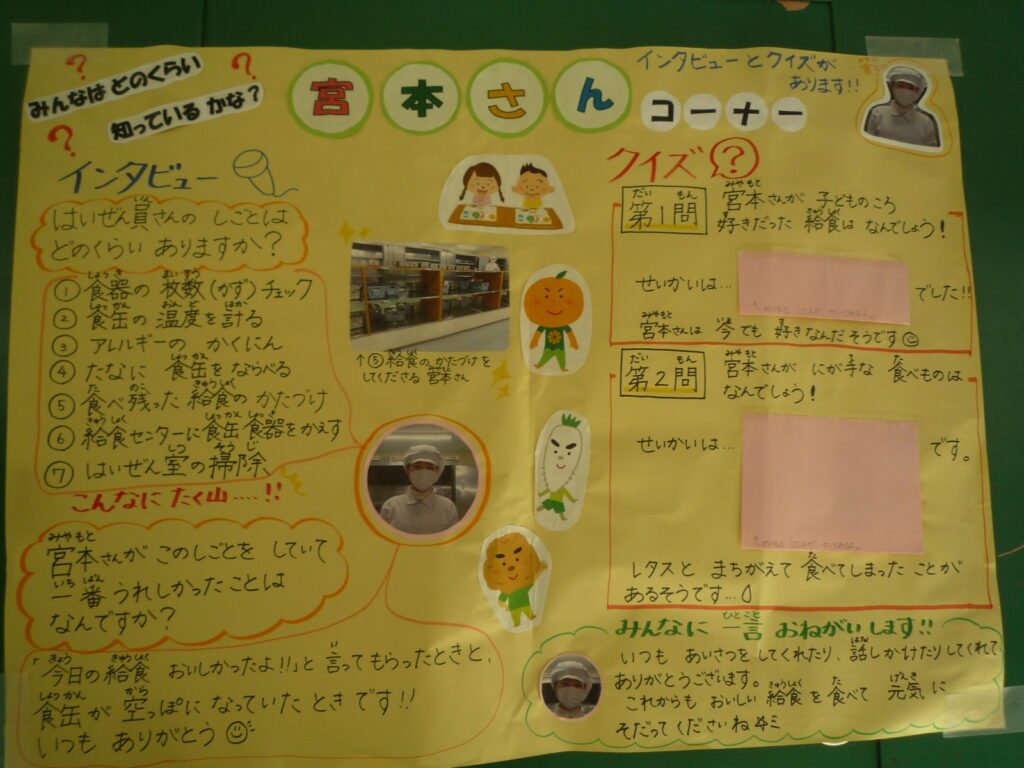 みんなは どのくらい
知っている かな？
宮本さん
コーナー
インタビューとクイズが
あります!!
インタビュー
はいぜん員さんの しごとは
どのくらい ありますか？
① 食器の 枚数(かず)チェック
② 食缶の 温度を計る
③ アレルギーの かくにん
④ たなに 食缶をならべる
⑤ 食べ残った 給食の かたづけ
⑥ 給食センターに食缶食器をかえす
⑦ はいぜん室の掃除
こんなに たく山....!!
↑⑤給食のかたづけを
してくださる 宮本さん
宮本さんが このしごとを していて
一番 うれしかったことは
なんですか？
「今日の給食 おいしかったよ!!」と 言ってもらったときと、
食缶が 空っぽに なっていた ときです!!
いつも ありがとう
クイズ?
第1問
宮本さんが 子どものころ
好きだった 給食は なんでしょう!
せいかいは...
でした!!
宮本さんは 今でも 好きなんだそうです
第2問
宮本さんが にが手な 食べものは
なんでしょう!
せいかいは...
です。
レタスと まちがえて 食べてしまった ことが
あるそうです...
みんなに 一言 おねがいします!!
いつも あいさつを してくれたり、話しかけたりしてくれて
ありがとうございます。
これからも おいしい 給食を 食べて 元気に
そだってくださいね